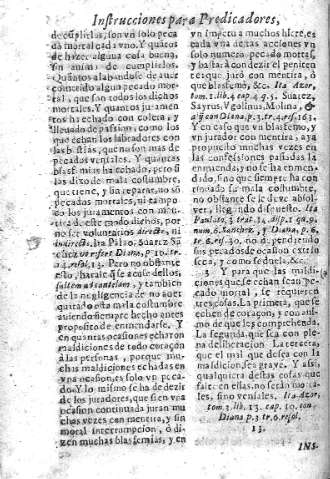 Instrucciones para Predicadores,
de cuplirlas, son vn solo peca
do mortal cada vno. Y quãtos
de hazer alguna cosa buena,
sin animo de cumplirlos.
Quãtos alabandose de auer
cometido algun pecado mor
tal, que son todos los dichos
mortales. Y quantos juramen
tos ha echado con colera, y
lleuado de passion, como los
que echan los labradores con
las bestias, que no son mas de
pecados veniales. Y quantas
mas ha echado, pero si
las dixo de mala costumbre,
que tiene, y sin reparar, no son
pecados mortales, ni tampo
co los juramentos con men-
tira de este modo dichos, por
no ser voluntarios directe, ni
indirecte, ita Palao, Suarez Sã
chez vt refert Diana, p. 10. tr.
4. resol. 13. Pero no obstante
esto, harale q se acuse dellos,
saltem ad cautelam, y tambien
de la negligencia de no auer
quitado esta mala costumbre
auiendo siempre hecho antes
proposito de enmendarse. Y
en quantas ocasiones echaron
maldiciones de todo coraçon
à las personas, porque mu-
chas maldiciones echadas en
vna ocasion, es solo vn peca
do. Y lo mismo se ha de dezir
de los juradores, que si en vna
ocasion continuada juran mu
chos vezes con mentira, y sin
moral interrupcion, ò di-
zen muchas blasfemias, y en
vn impetu a muchos hiere, es
cada vna de las acciones vn
solo numero pecado mortes,
y bastarà con dezir el peniten
te que jurò con mentira, ò
que blasfemo, &c. Ita Azor,
tom. 3. lib. 4. cap. 4. q. 5. Suarez,
Sayrus, Vgolinus, Molina, &
alij con Diana p. 3. tr. 4. res. 163.
Y en caso que vn blasfemo, y
vn jurador con mentira, aya
propuesto muchas vezes
en las confessiones passadas la
enmienda, y no se ha enmen-
dado, sino que siempre ha con
tinuado su mala costumbre,
no obstante se le debe absol-
ver, llegando dispuesto. Ita
num. 6. Sanchez, y Diana, p. 6.
tr. 6. res. 30. no defendiendo
sus pecados de ocasion extrin
seca, y como se duela, &c.
3 Y para que las maldi-
ciones que se echan sean peca
do mortal, se requieren
tres cosas. La primera, que se
echen de coraçon, y con ani-
mo de que les comprehenda.
La segunda, que sea con ple-
na deliberacion. La tercera,
que el mal que desea con la
maldicion, sea graue. Y assi,
qualquiera destas cosas que
falte en ellas, no seràn morta-
les, sino veniales. Ita Azor,
tom. 3. lib. 13. cap. 10. con
Diana p. 3. tr. 6. resol.
13.
INS-